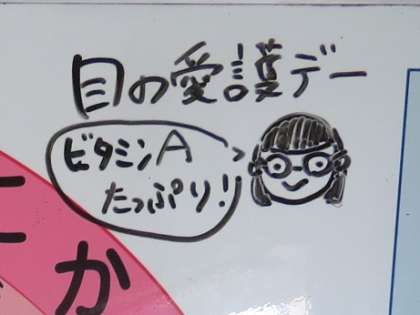 目の愛護デー
ビタミンA
たっぷり!
に
か